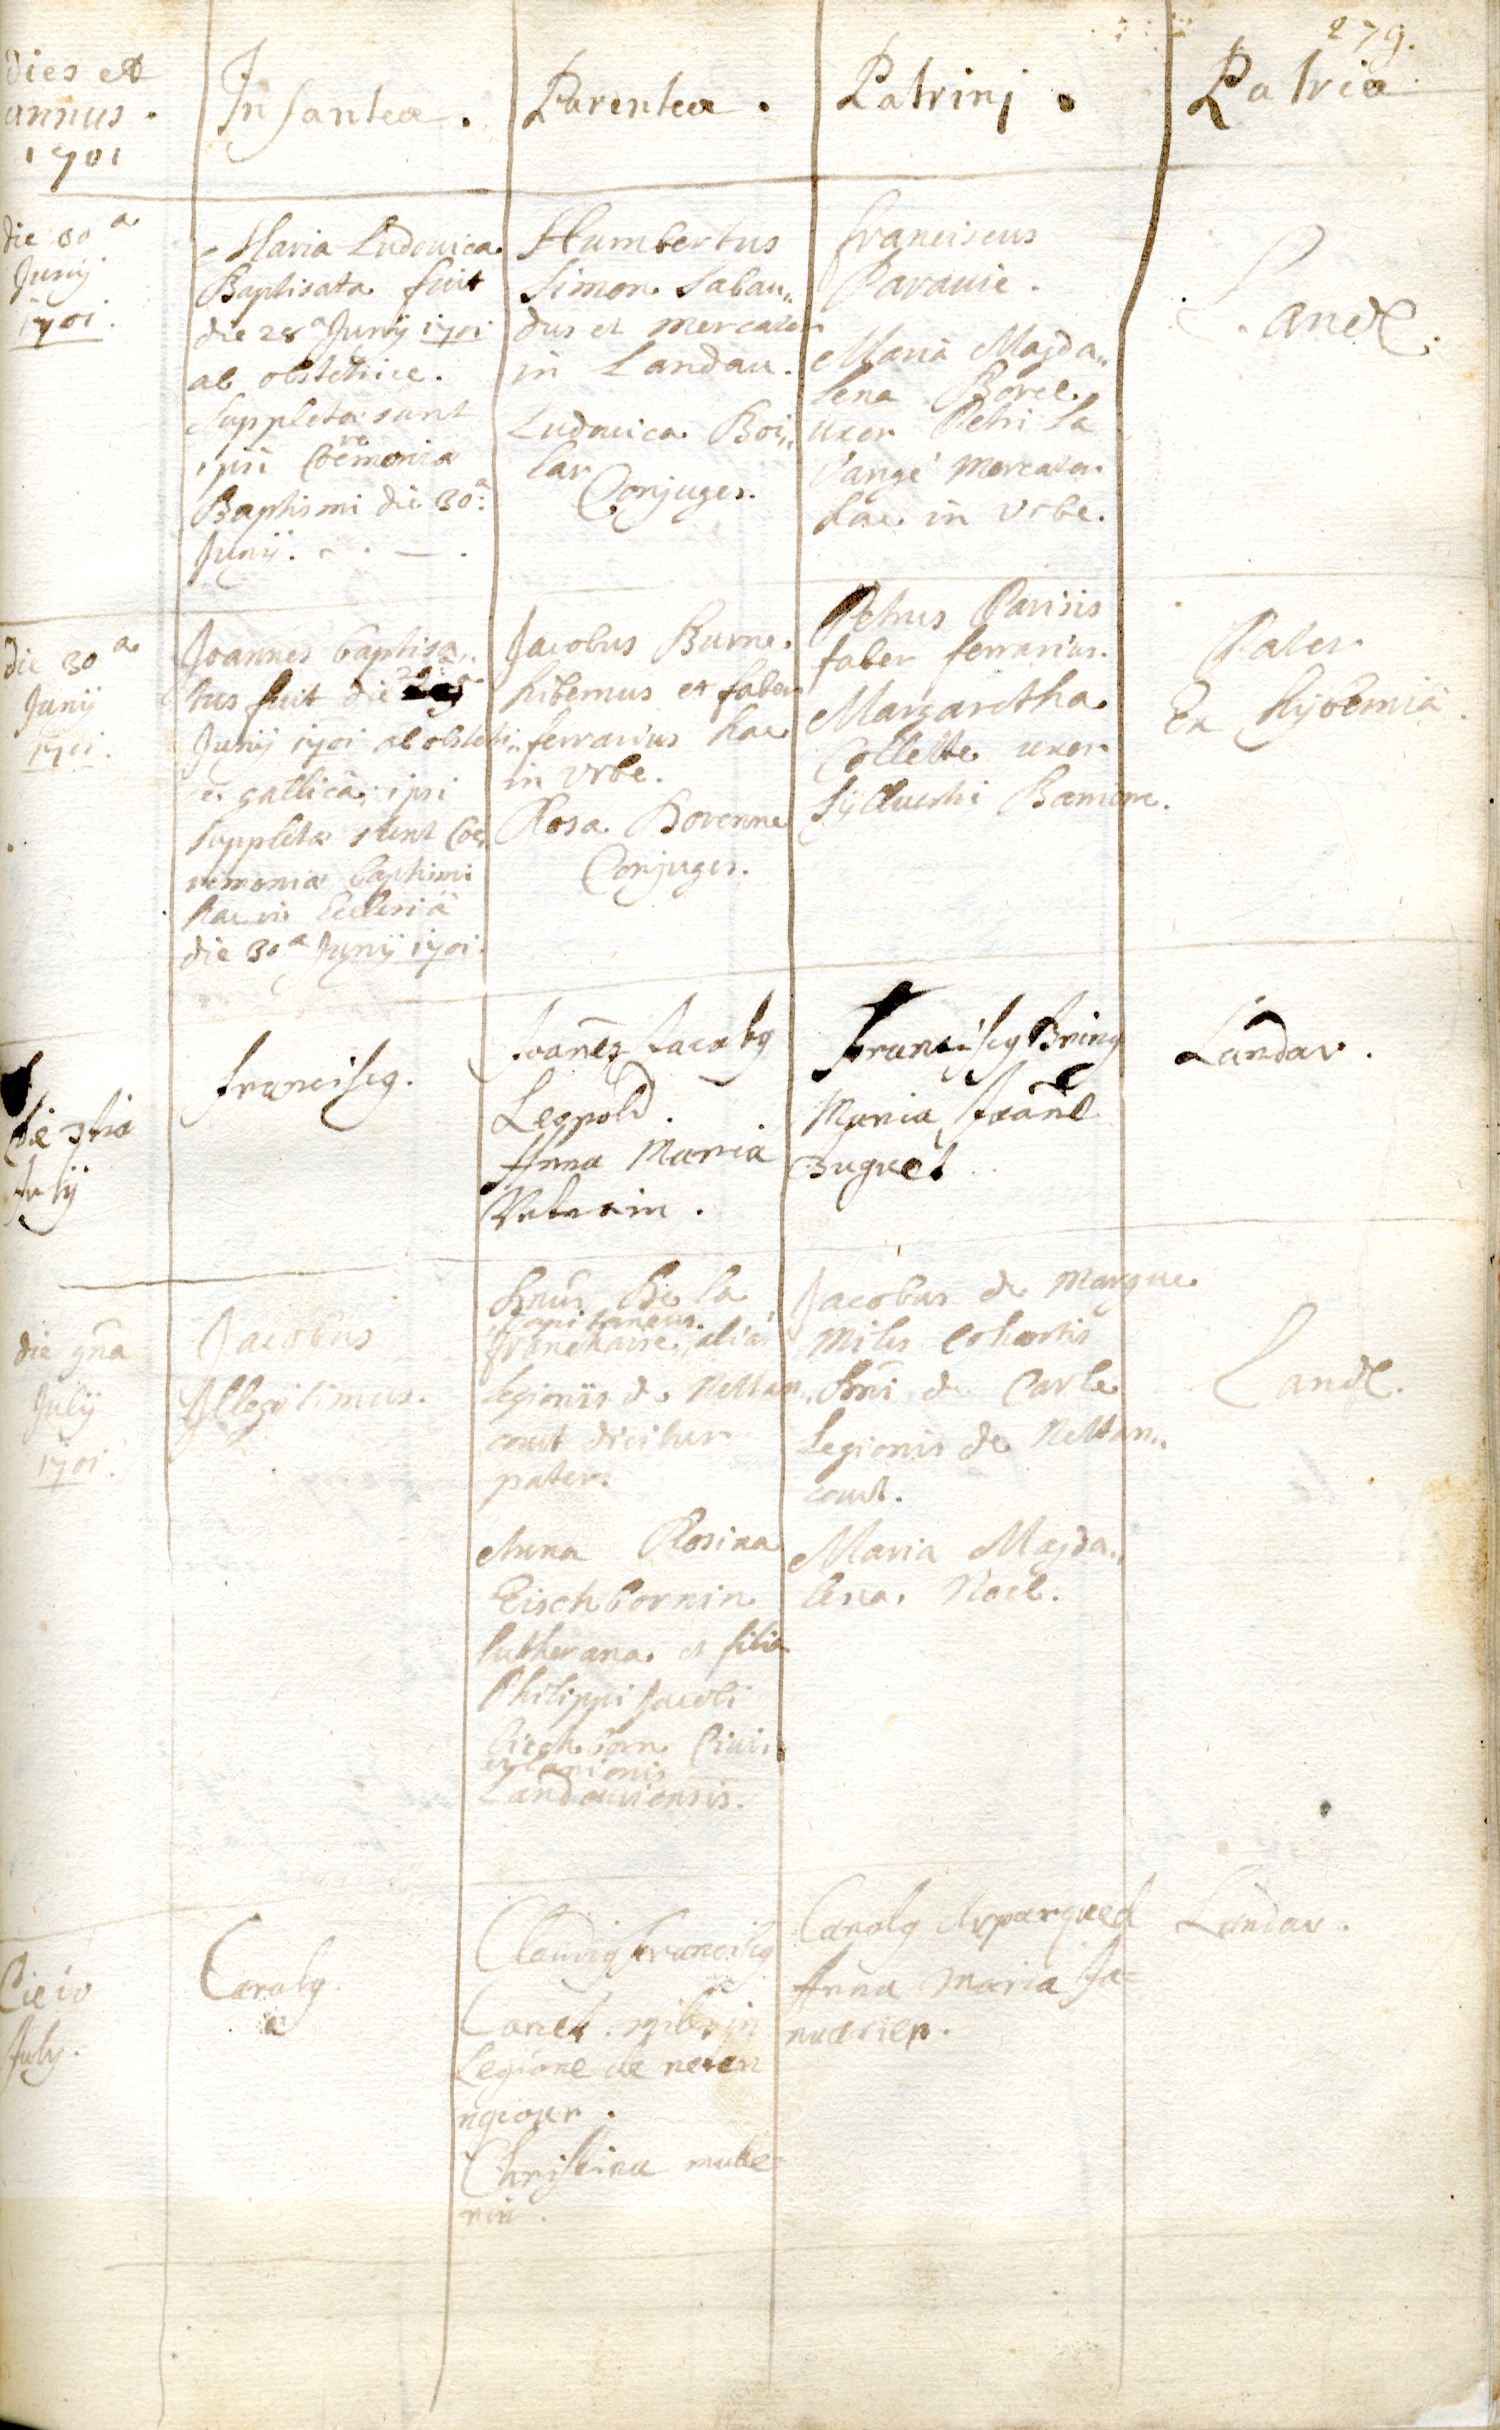 279.
dies et
annus.
1701
Infantes.
Parentes.
Patrini.
Patria
die 30a
Junij
1701.
Maria Ludovica
Baptisata fuit
die 28a Junij 1701
ab obstetrice.
Suppletæ sunt
ipsi Coeremoniæ
Baptismi die 30a
Junij.
Humbertus
Simon Sabau„
dus et mercator
in Landau.
Ludovica Boi„
lar
Conjuges.
franciscus
Paravic.
Maria Magda„
lena Borel
uxor Petri la
vange mercator
hac in Urbe.
Land.
die 30a
Junij
1701.
Joannes baptisa„
tus fuit die
Junij 1701 ab obstetri„
ce gallica; ipsi
suppletæ sunt Coe
remoniæ baptismi
hac in Ecclesiâ
die 30a Junij 1701.
Jacobus Burne
hibernus et faber
ferrarius hac
in Urbe.
Rosa Bovenne
Conjuges.
Petrus Parisis
faber ferrarius.
Margaretha
Collette uxor
Sylvestri
Pater
Ex hybernia.
die 3tia
July
francisc9.
Joañes Jacob9
Leopold.
Anna Maria
Francisc9 Bring
Maria Joañe
Buguet
Landav.
die 9na
July
1701.
Jacobus
Illegitimus.
Dnus De la
capitaneus
franchaise, aliâs
legionis de Nettan„
court dicitur
pater.
Anna Rosina
Eischbornin
lutherana et filia
Philippi Jacobi
Eischborn Civis
et lanionis
Landaviensis.
Jacobus de Margue
Miles Cohortis
Dni de Carle
Legionis de Nettan„
court.
Maria Magda„
lena Noel.
Land.
Die 10
July.
Carol9
Claudi9 francisc9
Canet miles in
Legione de neten
ncour.
Christina mulle
rin.
Carol9 Arparqued
Anna Maria Ja=
nuarien.
Landav.